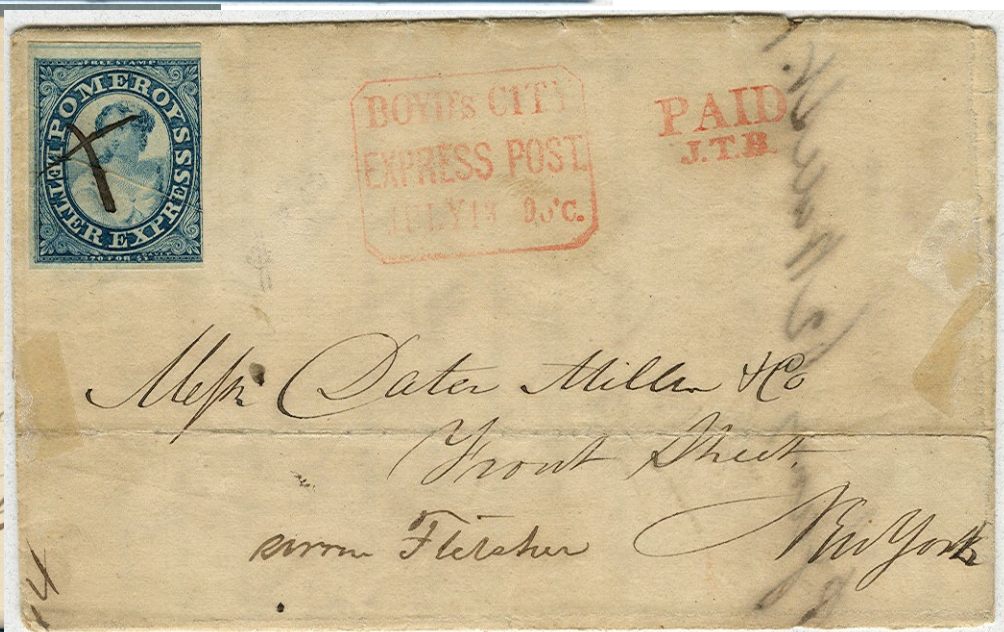 FREE STAMP
POMEROY'S LETTER EXPRESS
20 FOR $1
BOYD'S CITY
EXPRESS POST
JULY 13
PAID
J.T.B.
Messrs Dater Miller & Co
Front Street
New York
Fletcher